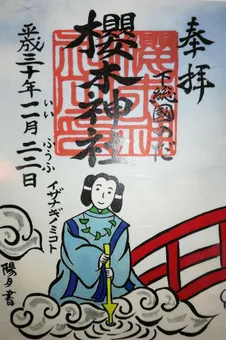 奉拝
下総國のだ
櫻木神社
平成三十年十一月二二日
いい
ふうふ
イザナギノミコト
陽月書